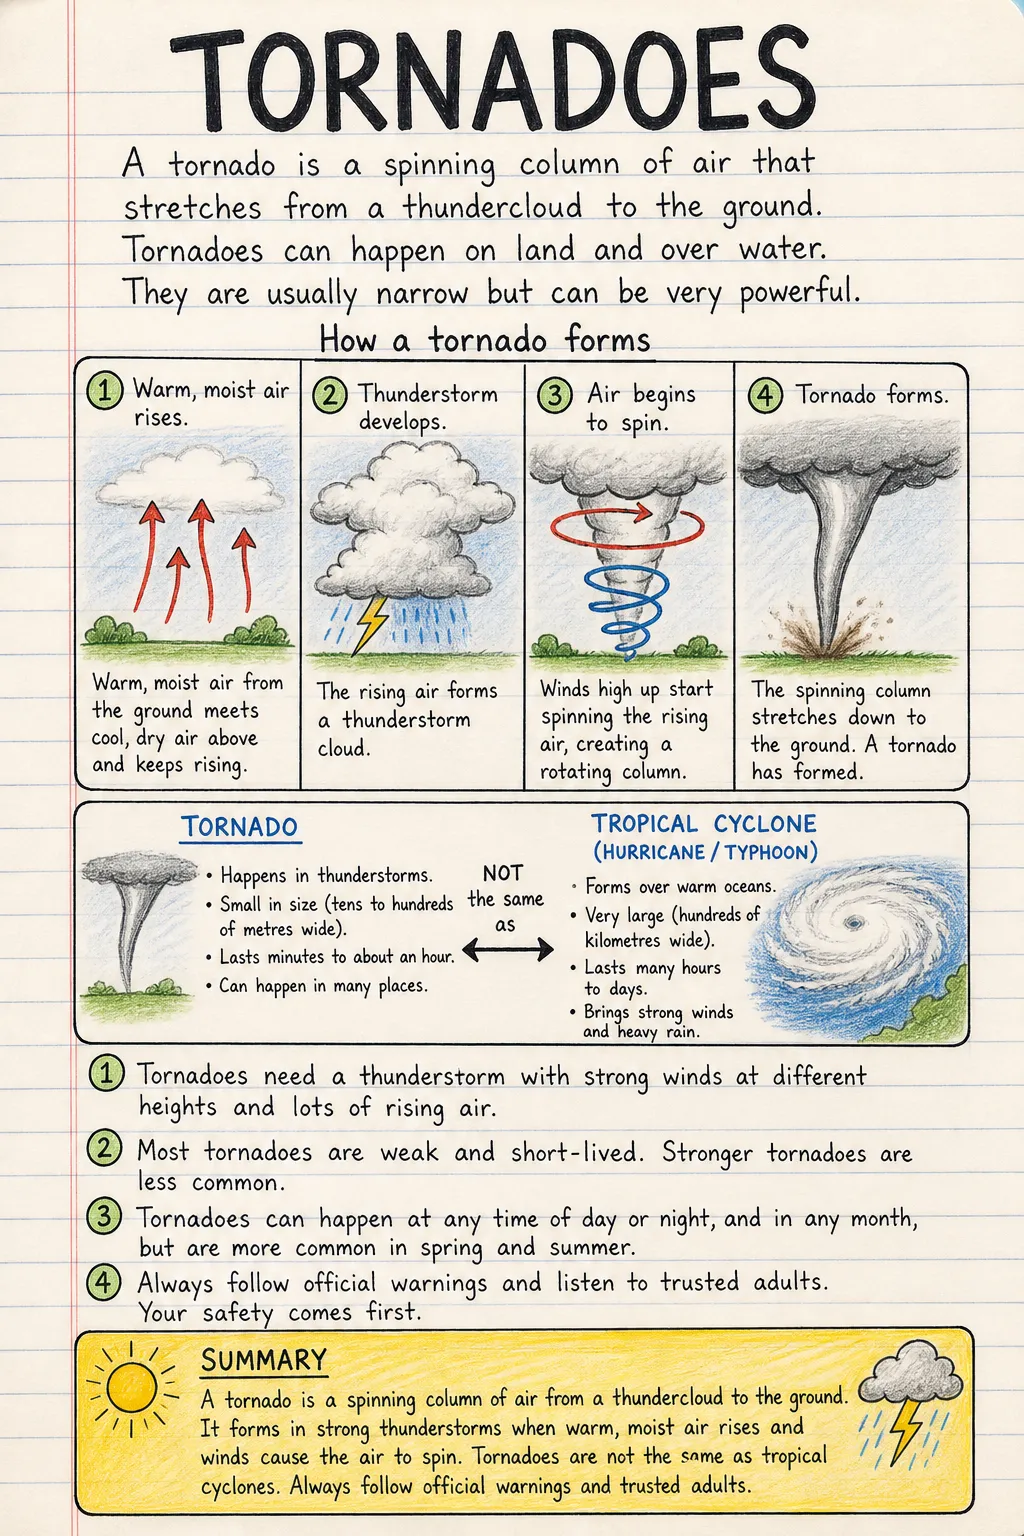 TORNADOES
A tornado is a spinning column of air that
stretches from a thundercloud to the ground.
Tornadoes can happen on land and over water.
They are usually narrow but can be very powerful.
How a tornado forms
1 Warm, moist air
rises.
Warm, moist air from
the ground meets
cool, dry air above
and keeps rising.
2 Thunderstorm
develops.
The rising air forms
a thunderstorm
cloud.
3 Air begins
to spin.
Winds high up start
spinning the rising
air, creating a
rotating column.
4 Tornado forms.
The spinning column
stretches down to
the ground. A tornado
has formed.
TORNADO
• Happens in thunderstorms.
• Small in size (tens to hundreds
of metres wide).
• Lasts minutes to about an hour.
• Can happen in many places.
NOT
the same
as
TROPICAL CYCLONE
(HURRICANE / TYPHOON)
• Forms over warm oceans.
• Very large (hundreds of
kilometres wide).
• Lasts many hours
to days.
• Brings strong winds
and heavy rain.
1 Tornadoes need a thunderstorm with strong winds at different
heights and lots of rising air.
2 Most tornadoes are weak and short-lived. Stronger tornadoes are
less common.
3 Tornadoes can happen at any time of day or night, and in any month,
but are more common in spring and summer.
4 Always follow official warnings and listen to trusted adults.
Your safety comes first.
SUMMARY
A tornado is a spinning column of air from a thundercloud to the ground.
It forms in strong thunderstorms when warm, moist air rises and
winds cause the air to spin. Tornadoes are not the same as tropical
cyclones. Always follow official warnings and trusted adults.